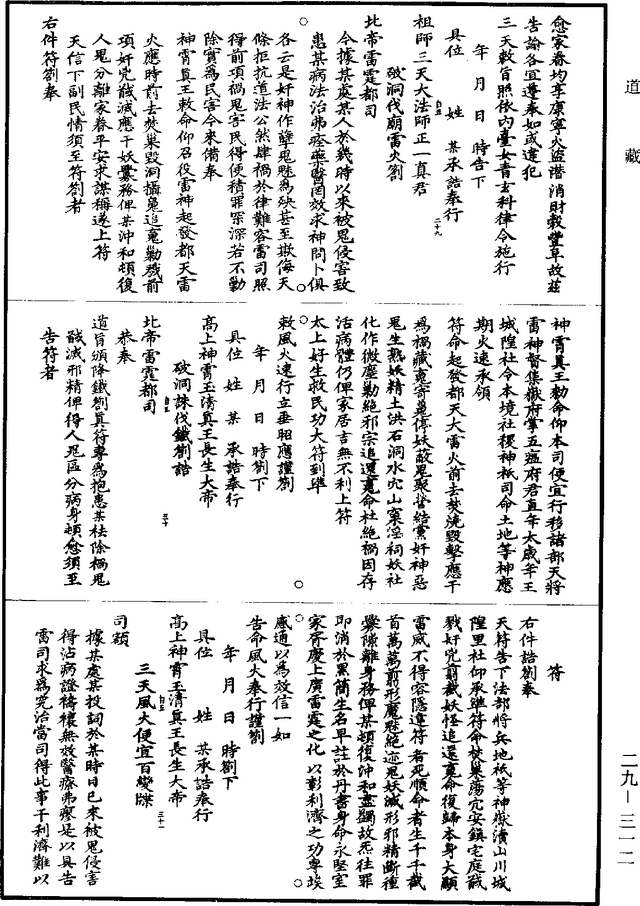 道藏
愈家眷均享康寧火盜潛消財穀豐阜故茲
告諭各宜遵奉如或違犯
三天敕旨照依內臺女青玄科律令施行
年 月 日 時告下
具位 姓 某承誥奉行
祖師三天大法師正一真君
破洞伐廟雷火劄
北帝雷霆都司
今據某處某人於幾時以來被鬼侵害致
患某病法治弗痊藥醫罔效求神問卜俱
各云是奸神作孽鬼魅為殃甚至欺侮天
條拒抗道法公然肆禍於律難容雷司照
得前項禍鬼害民得便積罪罙深若不勦
除實為民害今來備奉
神霄真王敕命仰召役雷神起發都天雷
火應時前去焚巢毀洞攝鬼追魂勦戮前
項奸兇馘滅應干妖孽務俾某沖和頓復
人鬼分離家眷平安求謀稱遂上符
天信下副民情須至符劄者
右件符劄奉
神霄真王勅命仰本司便宜行移諸部天將
雷神督集嶽府掌五瘟府君直年太歲年王
城隍社令本境社稷神祇司命土地等神應
期火速承領
符命起發都天大雷火前去焚燒毀擊應干
為禍藏魂寄魄停妖蔽鬼聚嘗結黨奸神惡
鬼生熟妖精土洪石洞水穴山窠淫祠妖社
化作微塵勦絕邪宗追還魂命杜絕禍因存
活病體仍俾家居吉無不利上符
太上好生救民功大符到準
敕風火速行立垂昭應謹劄
年 月 日 時劄下
具位 姓 某 承誥奉行
高上神霄玉清真王長生大帝
破洞誅伐鐵劄誥
北帝雷霆都司
恭奉
道旨頒降鐵劄真符專為抱患某祛除禍鬼
馘滅邪精俾得人鬼區分病身頓愈須至
告符者
符
右件誥劄奉
天符告下法部將兵地祇等神嶽瀆山川城
隍里社仰承準符命焚巢蕩穴安鎮宅庭馘
戮奸兇翦截妖怪追還魂命復歸本身大顯
雷威不得容隱違符者死順命者生千千截
首萬萬翦形魔魅絕迹鬼妖滅形邪精斷種
孽隙離身務俾某頓復沖和壼蠲故炁往罪
即消於黑簡生名早註於丹書身命永堅室
家胥慶上廣雷霆之化以彰利濟之功專埃
感通以為效信一如
告命風火奉行謹劄
年 月 日 時劄下
具位 姓 某承誥奉行
高上神霄玉清真王長生大帝
三天風火便宜百變牒
司額
據某處某投詞於某時日已來被鬼侵害
得沾病證禱禳無效醫療弗瘳是以具告
雷司求為究治當司得此事干利濟難以
二九—三一二